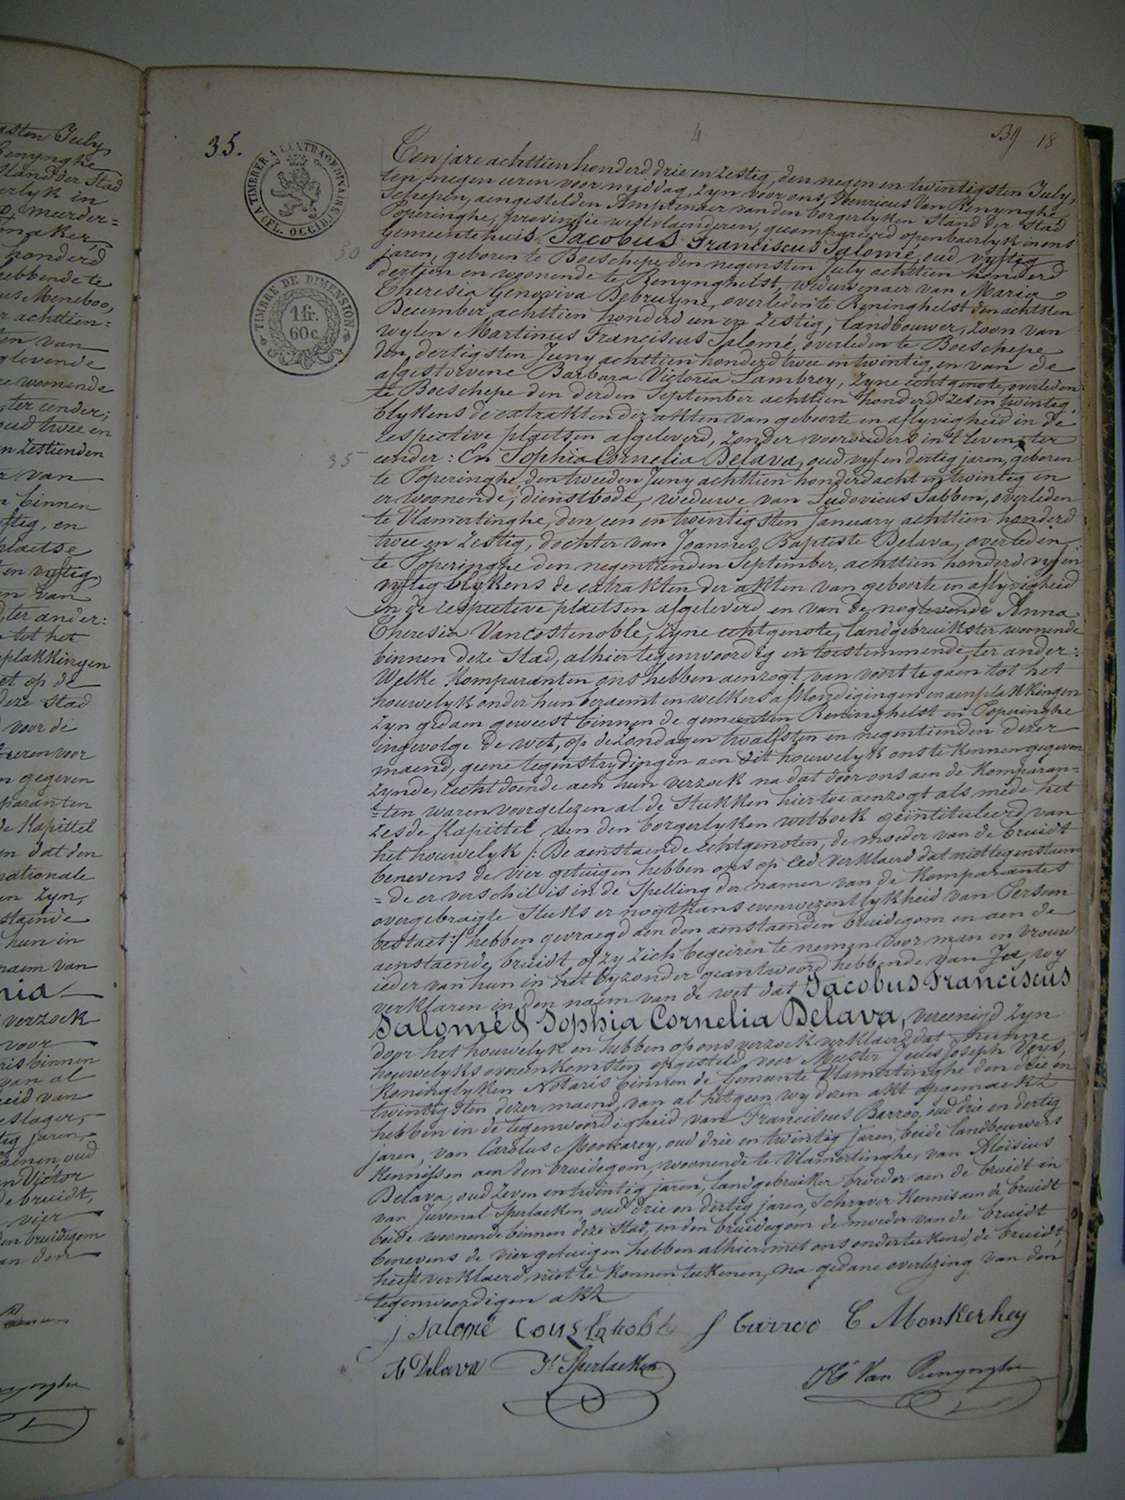 35.
39 18
TIMBRE A L'EXTRAORDINAIRE
FL. OCCID.
TIMBRE DE DIMENSION
1 fr.
60 c.
Ten jare achttien honderd drie en zestig, den negen en twintigsten July,
ten negen uren voor middag, zyn voor ons, Henricus Van Renynghe
Schepen, aengestelden Amptenaer van den borgerlyken Stand der Stad
Poperinghe, provincie westvlaenderen, gecompareerd openbaerlyk in ons
gemeentehuis, Jacobus Franciscus Salomé, oud vyftig
30
jaren, geboren te Boeschepe den negensten July achttien honderd
dertien en wonende te Renynghelst, weduwenaer van Maria
Theresia Genoviva Debruyne, overleden te Reninghelst den achtsten
December achttien honderd een en zestig, landbouwer, zoon van
wylen Martinus Franciscus Salomé, overleden te Boeschepe
den dertigsten Juny achttien honderd twee en twintig, en van de
afgestorvene Barbara Victoria Lambrey, zyne echtgenote, overleden
te Boeschepe den derden September achttien honderd zes en twintig,
blykens de extrakten der akten van geboorte en aflyvigheid in de
respective plaetsen afgeleverd, zonder voorouders in 't leven, ter
35
eender: En Sophia Cornelia Delava, oud vyf en dertig jaren, geboren
te Poperinghe, den tweeden Juny achttien honderd acht en twintig en
er woonende, dienstbode, weduwe van Ludovicus Sabben, overleden
te Vlamertinghe, den een en twintigsten January achttien honderd
twee en zestig, dochter van Joannes Baptiste Delava, overleden
te Poperinghe den negentienden September, achttien honderd vyf en
vyftig blykens de extrakten der akten van geboorte en aflyvigheid
in de respective plaetsen afgeleverd en van de noglevende Anna
Theresia Vancostenoble, zyne echtgenote, landgebruikster woonende
binnen deze Stad, alhier tegenwoordig en toestemmende, ter ander:
Welke Komparanten ons hebben aenzogt van voort te gaen tot het
houwelyk onder hun beraemt en welkers afkondigingen en aenplakkingen
zyn gedaen geweest binnen de gemeenten Reninghelst en Poperinghe
ingevolge de wet, op de zondagen twalfsten en negentienden dezer
maend, geene tegenstrydingen aen dit houwelyk ons te kennen gegeven
zynde, recht doende aen hun verzoek na dat door ons aen de Komparan=
=ten waren voorgelezen al de Stukken hiertoe aenzogt als mede het
zesde Kapittel van den borgerlyken wetboek geïntituleerd van
het houwelyk /: De aenstaende Echtgenoten, de moeder van de bruidt
benevens de vier getuigen hebben ons op Eed verklaerd dat niettegenstaen
=de er verschil is in de Spelling der namen van de Komparantes
overgebragte Stuks er nogtkans evenwezentlykheid van Persoon
bestaet:/ hebben gevraegd aen den aenstaenden bruidegom en aen de
aenstaende bruidt of zy zich begeiren te nemen voor man en vrouw
ieder van hun in het byzonder geantwoord hebbende van Ja, wy
verklaren in den naem van de wet dat Jacobus Franciscus
Salomé & Sophia Cornelia Delava, vereenigd zyn
door het houwelyk en hebben op ons verzoek verklaerd dat hunne
houwelyks overeenkomsten opgesteld voor Meester Jules Joseph Voys,
Koninglyken Notaris binnen de Gemeente Vlamertinghe den drie en
twintigsten dezer maend, van al hetgeen wy dezen akt opgemaekt
hebben in de tegenwoordigheid van Franciscus Barroo, oud drie en dertig
jaren, van Carolus Monkarey, oud drie en twintig jaren, beide landbouwers
Kennissen aen den bruidegom, woonende te Vlamertinghe, van Aloïsius
Delava, oud zeven en twintig jaren, landgebruiker broeder aen de bruidt en
van Juvenal Sperlaeken, oud drie en dertig jaren, Schryver Kennis aen de bruidt
beide woonende binnen deze Stad, en den bruidegom de moeder van de bruidt
benevens de vier getuigen hebben alhier met ons onderteekend, de bruidt
heeft verklaerd niet te konnen teekenen, na gedane overlezing van den
tegenwoordigen akt
j Salomé Coustenoble f barroo C Monkerhey
A Delava Jl Sperlaeken Hi Van Renynghe